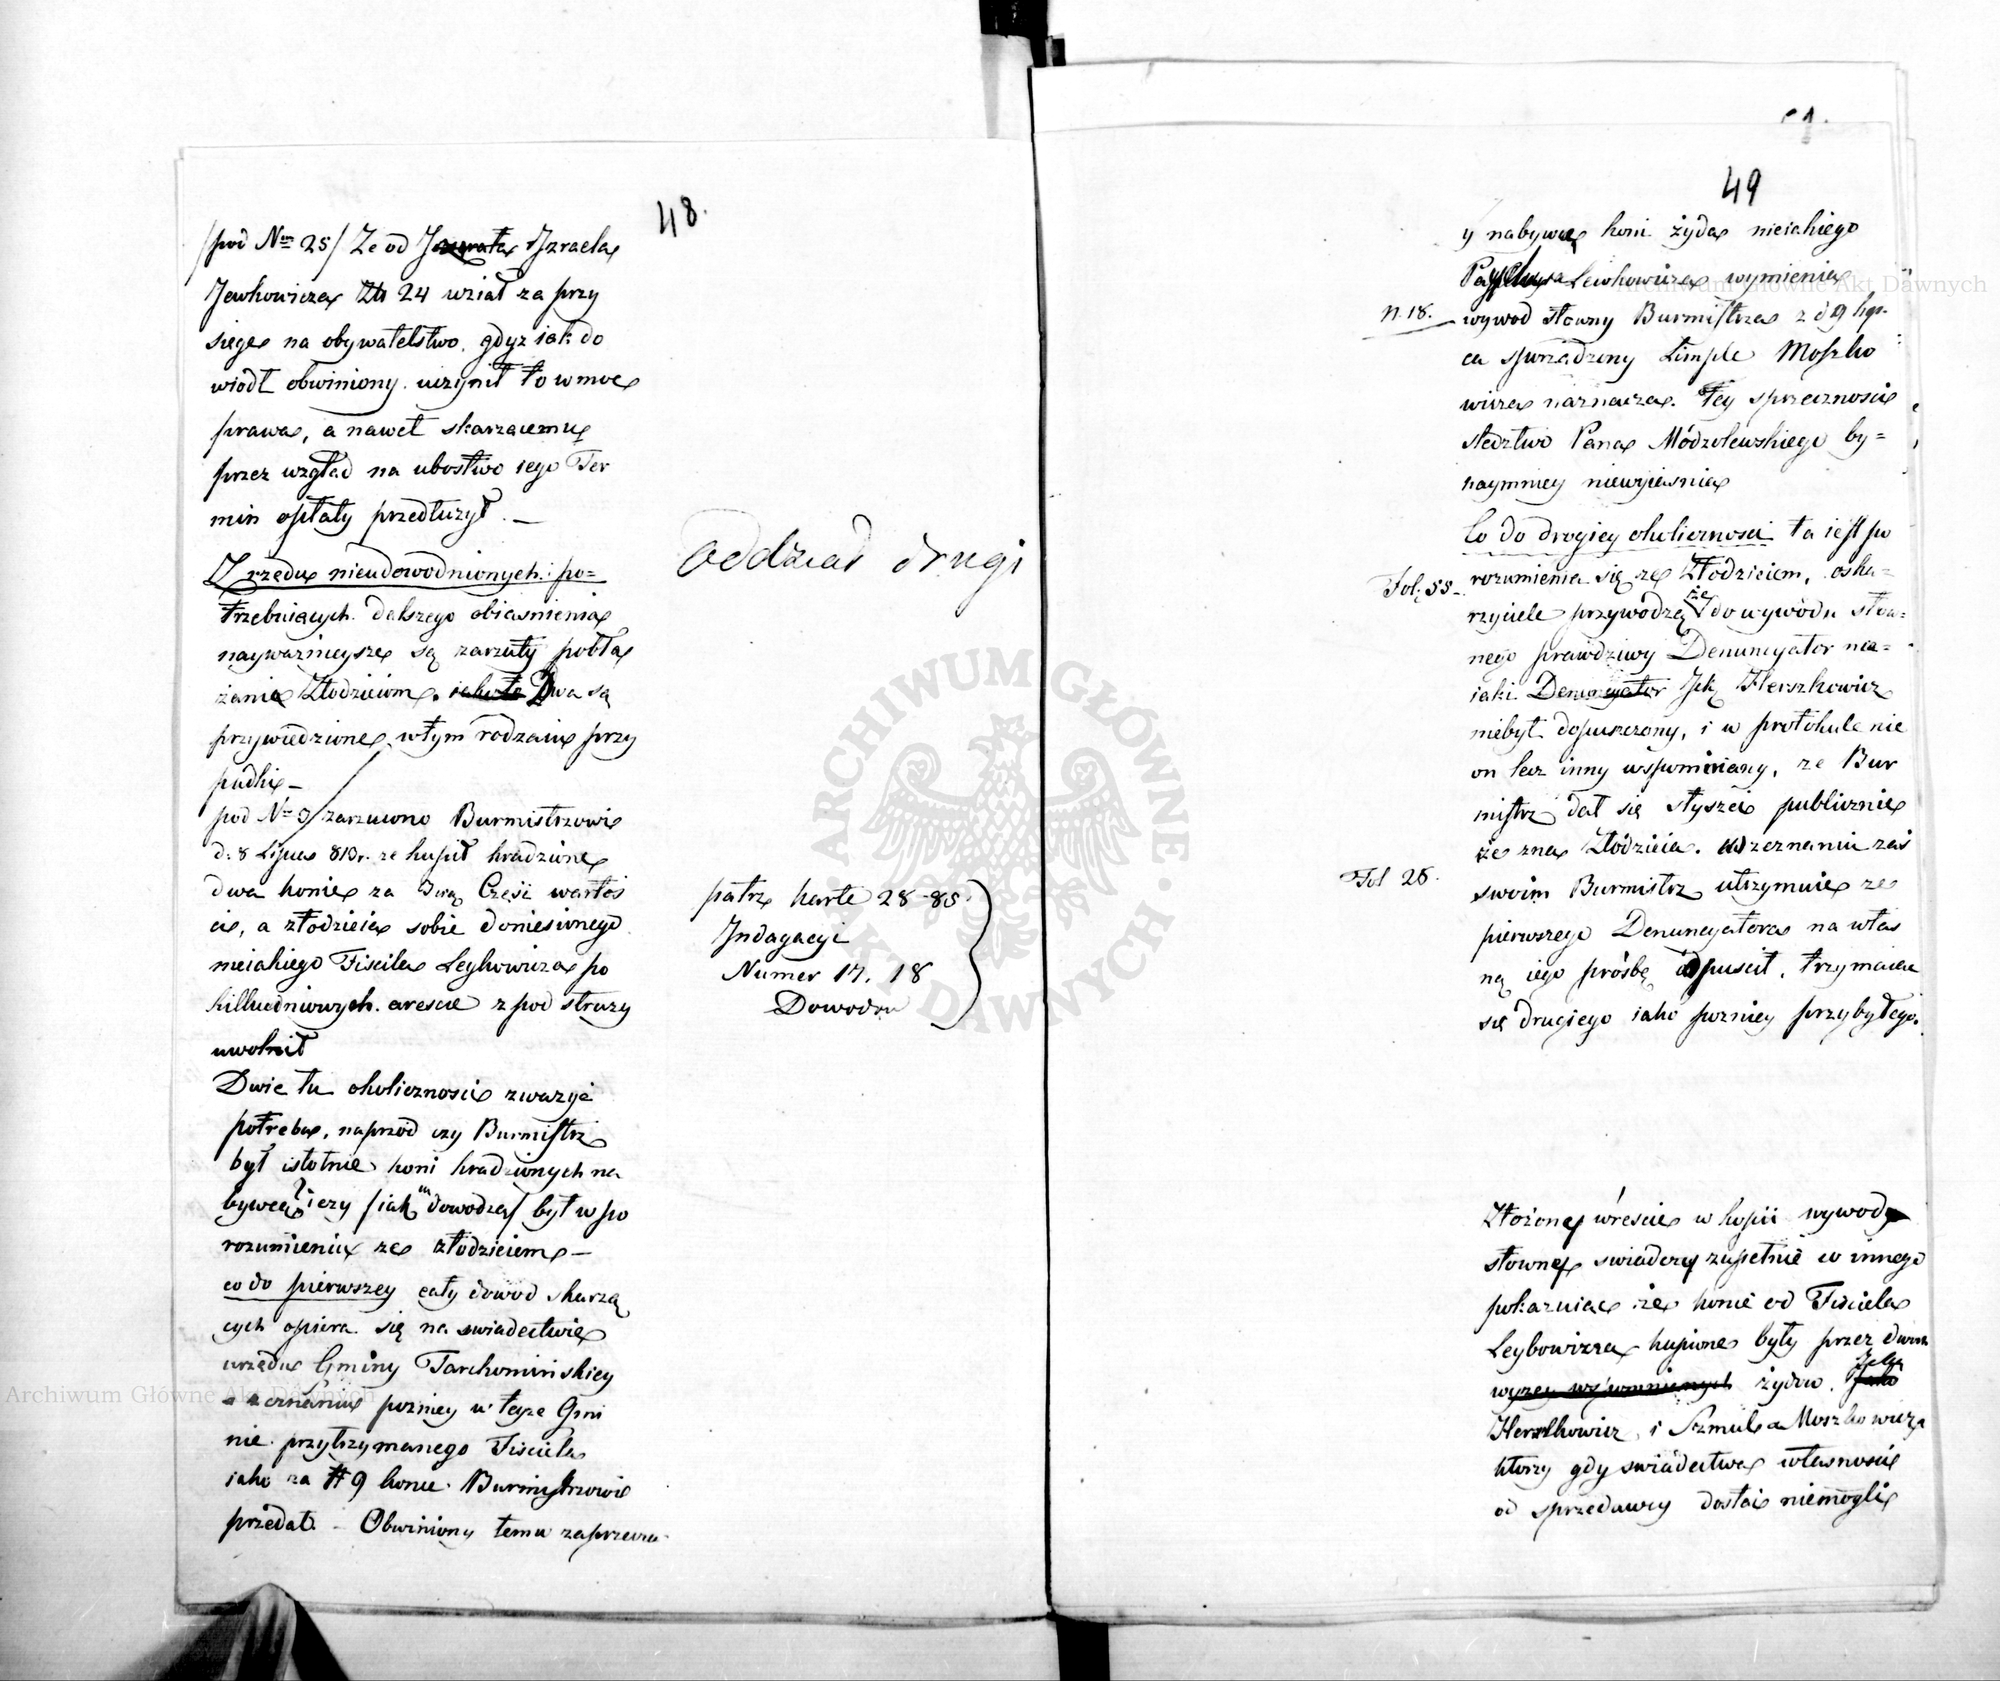 48.
/pod Nem 25/ Ze od Izraela
Jewkowicza Zł 24 wział za przy
sięgę na obywatelstwo, gdyż iak do
wiodł obwiniony uczynił to w moc
prawa, a nawet skarzącemu
przez wzgląd na ubostwo iego Ter
min opłaty przedłużył. —
Z rzędu nieudowodnionych: po=
trzebuiących dalszego obiasnienia
nayważnieysze są zarzuty pobła
żania Złodzieiom. iako to Dwa są
przywiedzione w tym rodzaiu przy
padki –
pod No 3/ zarzucono Burmistrzowi
d: 8 Lipca 813r. ze kupił kradzione
dwa konie za 3cią Część wartoś
ci, a złodzieia sobie doniesionego
nieiakiego Fiszela Leybowicza po
kilkudniowych areście z pod strazy
uwolnił
Dwie tu okoliczności zwazyć
potrzeba, naprzod czy Burmistrz
był istotnie koni kradzionych na
bywcą? iczy /iak dowodzą/ był w po
rozumieniu ze złodzieiem –
co do pierwszey cały dowod skarzą
cych opiera się na swiadectwie
urzędu Gminy Tarchomińskiey
zeznaniu pozniey w teyze Gmi
nie przytrzymanego Fiszela
iako za # 9 konie Burmistrzowi
przedał. – Obwiniony temu zaprzecza
Oddział drugi
patrz karte 28-85.
Indagacyi
Numer 17, 18
Dowodu
49
y nabywcę koni żyda nieiakiego
Lewkowicza wymienia
N. 18.
wywod słowny Burmistrza z d 9 lip=
ca sporządzony Moszko
wicza naznacza. tey sprzeczności
sledztwo Pana Módzolewskiego by=
naymniey niewyiasnia
Co do drogiey okoliczności ta iest po
Fol: 55-
rozumienia się ze Złodzieiem, oska=
rzyciele przywodzą że do wywodu słow=
nego prawdziwy Denuncyator nie=
iaki Denuncyator Herszkowicz
niebył dopuszczony, i w protokule nie
on lecz inny wspomniany, ze Bur
mistrz dał się słyszeć publicznie
że zna Złódzieia. w zeznaniu zaś
Fol 28.
swoim Burmistrz utrzymuie ze
pierwszego Denuncyatora na włas
ną iego prośbę opuscił, trzymaiac
się drugiego iako pozniey przybyłego.
Złożone wreście w kopii wywody
słowne swiadczą zupełnie co innego
pokazuiąc że konie od Fiszela
Leybowicza kupione były przez dwoch
wyzey wspomnionych żydow.
Herszkowicz i Szmula Moszkowicza
ktorzy gdy swiadectwa własności
od sprzedawcy dostać niemogli
ARCHIWUM GŁÓWNE
AKT DAWNYCH
Archiwum Główne Akt Dawnych
Archiwum Główne Akt Dawnych